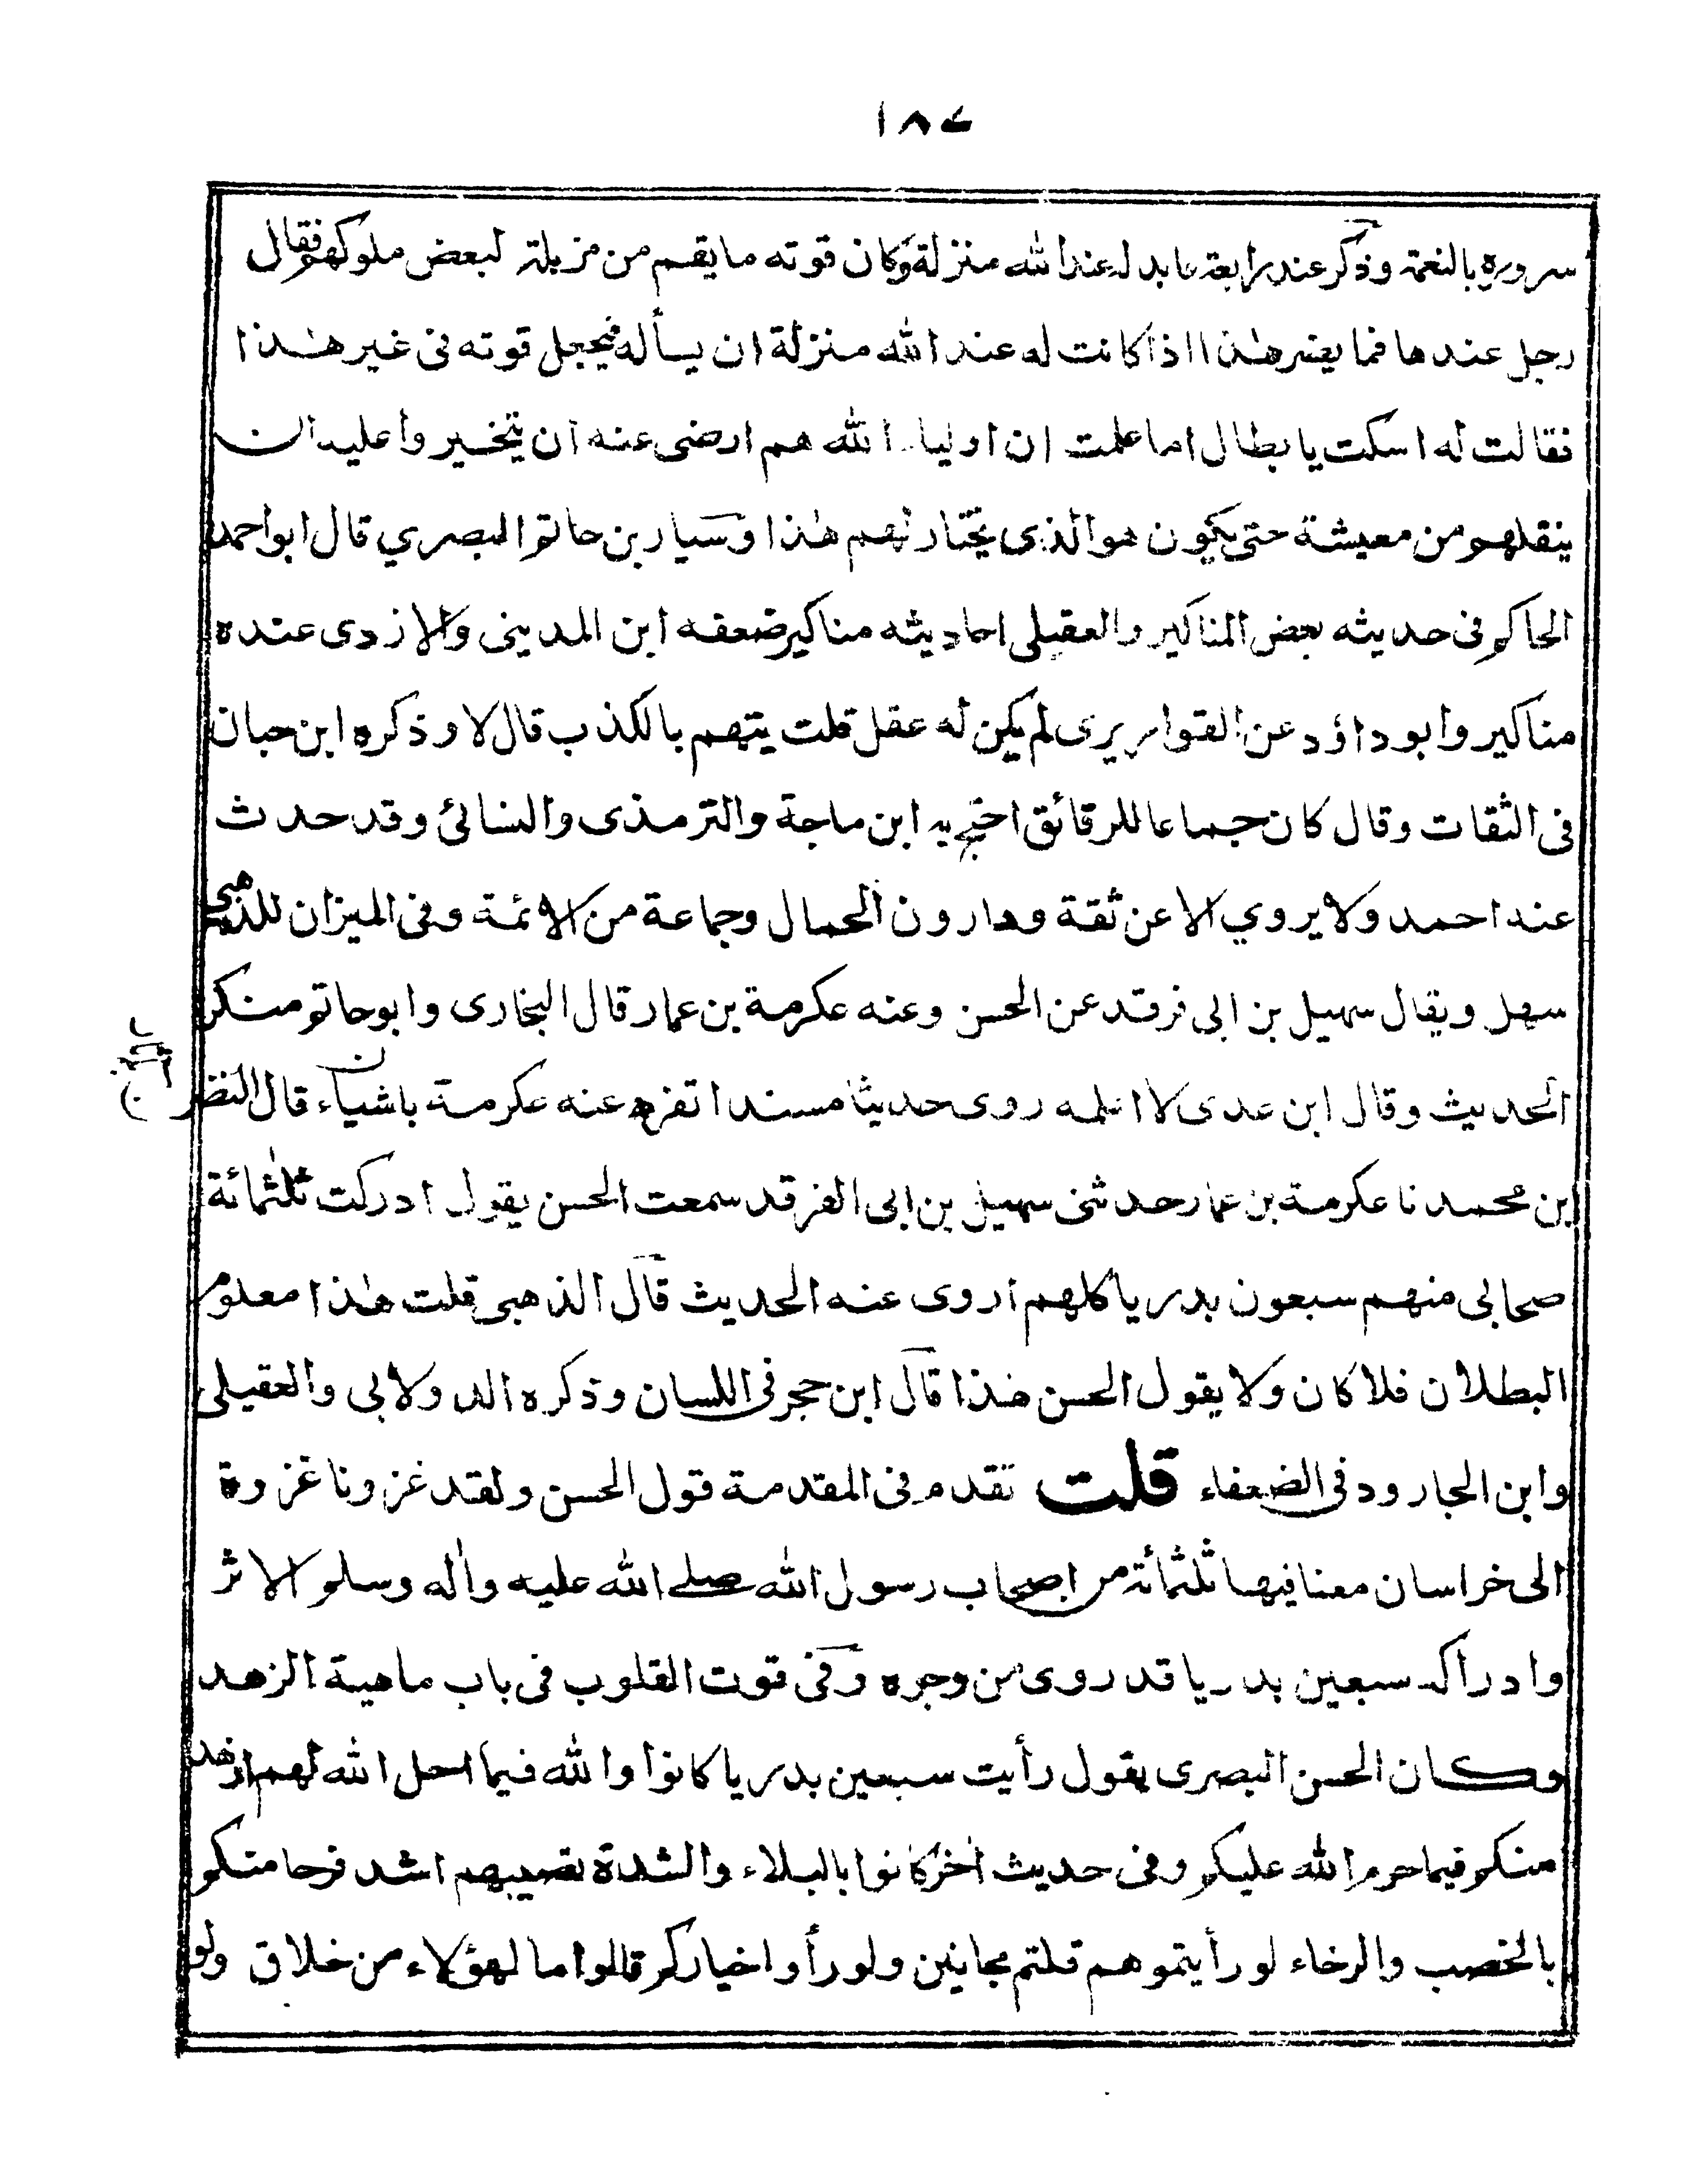 ١٨٧
سروره بالنعمة وذكر عند رابعة عابد له عند الله منزلة وكان قوته ما يقم من مزبلة لبعض ملوكهم فقال
رجل عندها فما يضر هٰذا اذا كانت له عند الله منزلة ان يسأله فيجعل قوته فى غير هٰذا
فقالت له اسكت يا بطال اما علمت ان اولياء الله هم ارضى عنه ان يتخيروا عليه ان
ينقلهم من معيشة حتى يكون هو الذى يختار لهم هٰذا وسيار بن حاتم البصري قال ابو احمد
الحاكم فى حديثه بعض المناكير والعقيلى احاديثه مناكير ضعفه ابن المدينى والازدى عنده
مناكير وابوداؤد عن القواريرى لم يكن له عقل قلت يتهم بالكذب قال لا وذكره ابن حبان
فى الثقات وقال كان جماعا للرقائق احتج به ابن ماجة والترمذى والنسائى وقد حدث
عنه احمد ولا يروي الا عن ثقة وهارون الحمال وجماعة من الائمة وفى الميزان للذهبى
سهل ويقال سهيل بن ابى فرقد عن الحسن وعنه عكرمة بن عمار قال البخارى وابوحاتم منكر
الحديث وقال ابن عدى لا اعلمه روى حديثا مسندا تفرد عنه عكرمة باشياء قال النضر
ابن محمد نا عكرمة بن عمار حدثنى سهيل بن ابى الفرقد سمعت الحسن يقول ادركت ثلٰثمائة
صحابى منهم سبعون بدريا كلهم اروى عنه الحديث قال الذهبى قلت هٰذا معلوم
البطلان فلا كان ولا يقول الحسن هٰذا قال ابن حجر فى اللسان وذكره الدولابى والعقيلى
وابن الجارود فى الضعفاء قلت تقدم فى المقدمة قول الحسن ولقد غزونا غزوة
الى خراسان معنا فيها ثلٰثمائة من اصحاب رسول الله صلے الله عليه واٰله وسلم الاثر
وادراكه سبعين بدريا قد روى من وجوه وفى قوت القلوب فى باب ماهية الزهد
وكان الحسن البصرى يقول رأيت سبعين بدريا كانوا والله فيما احل الله لهم ازهد
منكم فيما حرم الله عليكم وفى حديث اٰخر كانوا بالبلاء والشدة تصيبهم اشد فرحا منكم
بالخصب والرخاء لو رأيتموهم قلتم مجانين ولو رأوا خياركم قالوا ما لهؤلاء من خلاق ولو